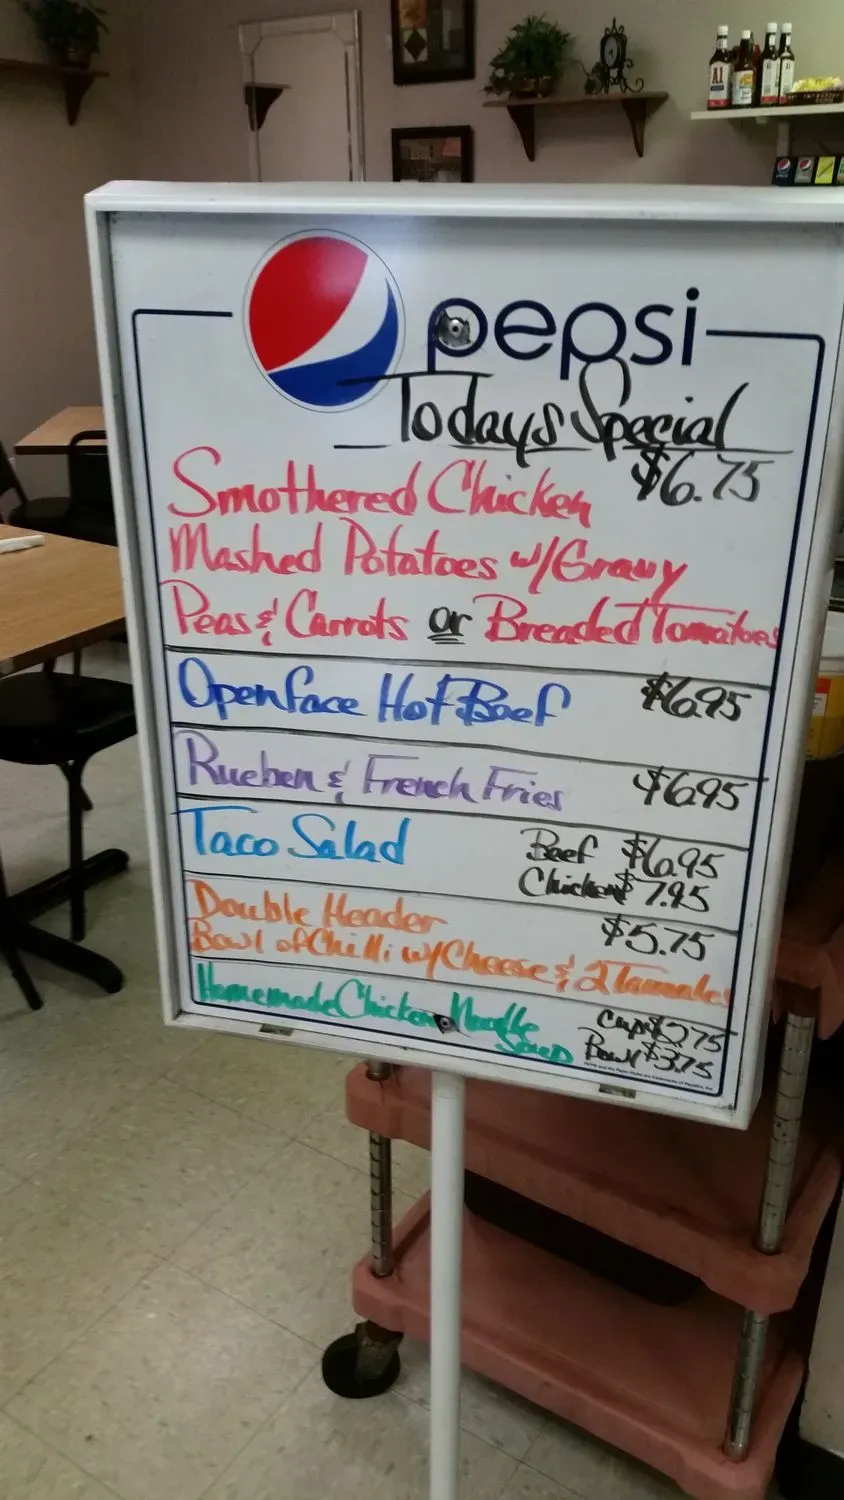 A1
pepsi
Todays Special
$6.75
Smothered Chicken
Mashed Potatoes w/Gravy
Peas & Carrots or Breaded Tomatoes
Openface Hot Beef $6.95
Rueben & French Fries $6.95
Taco Salad Beef $6.95
Chicken $7.95
Double Header $5.75
Bowl of Chilli w/Cheese & 2 Tamales
Homemade Chicken Noodle Soup Cup $2.75
Bowl $3.75